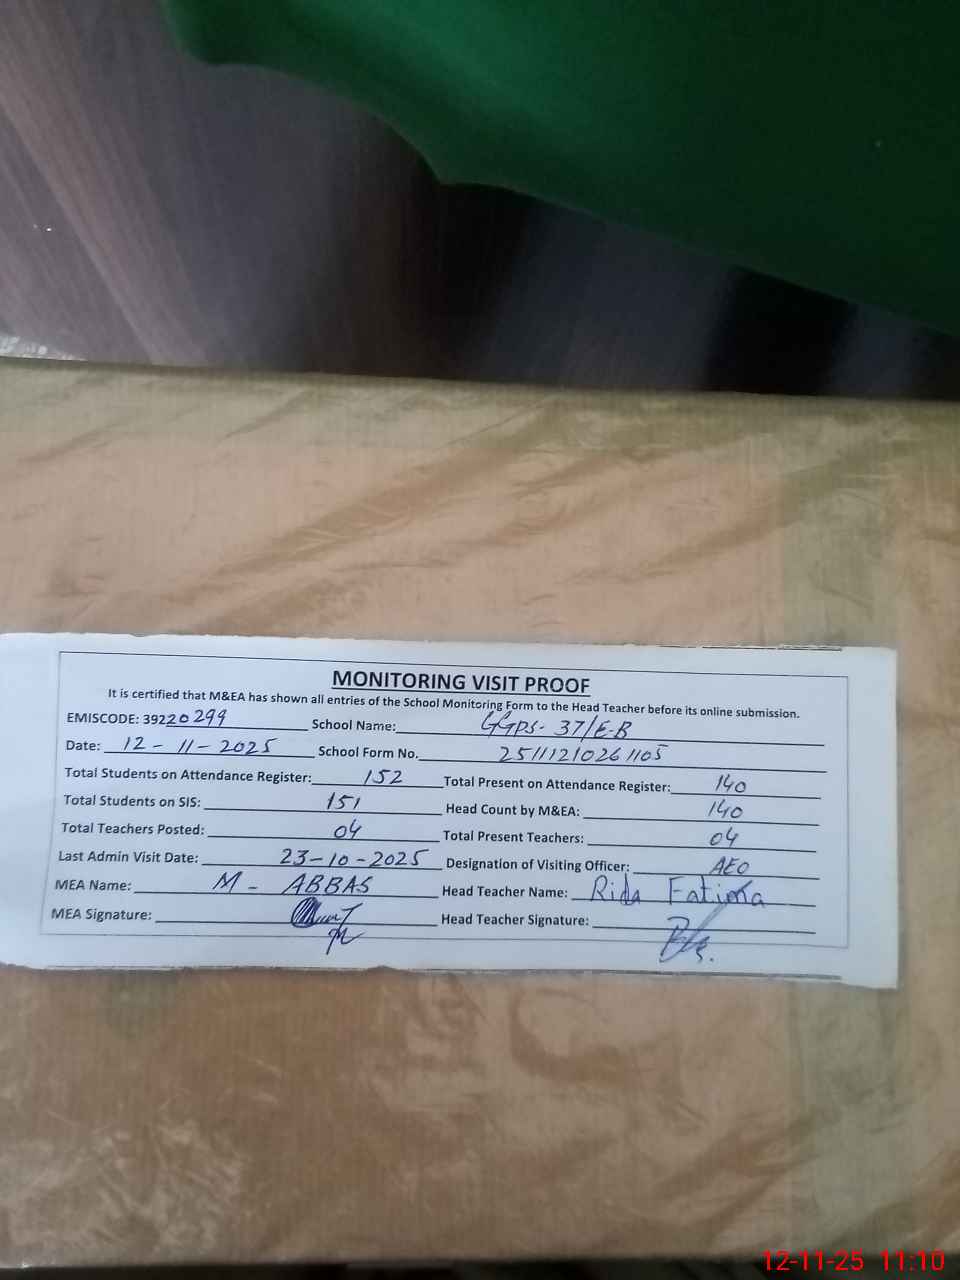 MONITORING VISIT PROOF
It is certified that M&EA has shown all entries of the School Monitoring Form to the Head Teacher before its online submission.
EMISCODE: 39220299 School Name: GGPS- 37/E-B
Date: 12-11-2025 School Form No. 25111210261105
Total Students on Attendance Register: 152 Total Present on Attendance Register: 140
Total Students on SIS: 151 Head Count by M&EA: 140
Total Teachers Posted: 04 Total Present Teachers: 04
Last Admin Visit Date: 23-10-2025 Designation of Visiting Officer: AEO
MEA Name: M- ABBAS Head Teacher Name: Rida Fatima
MEA Signature: Head Teacher Signature:
12-11-25 11:10